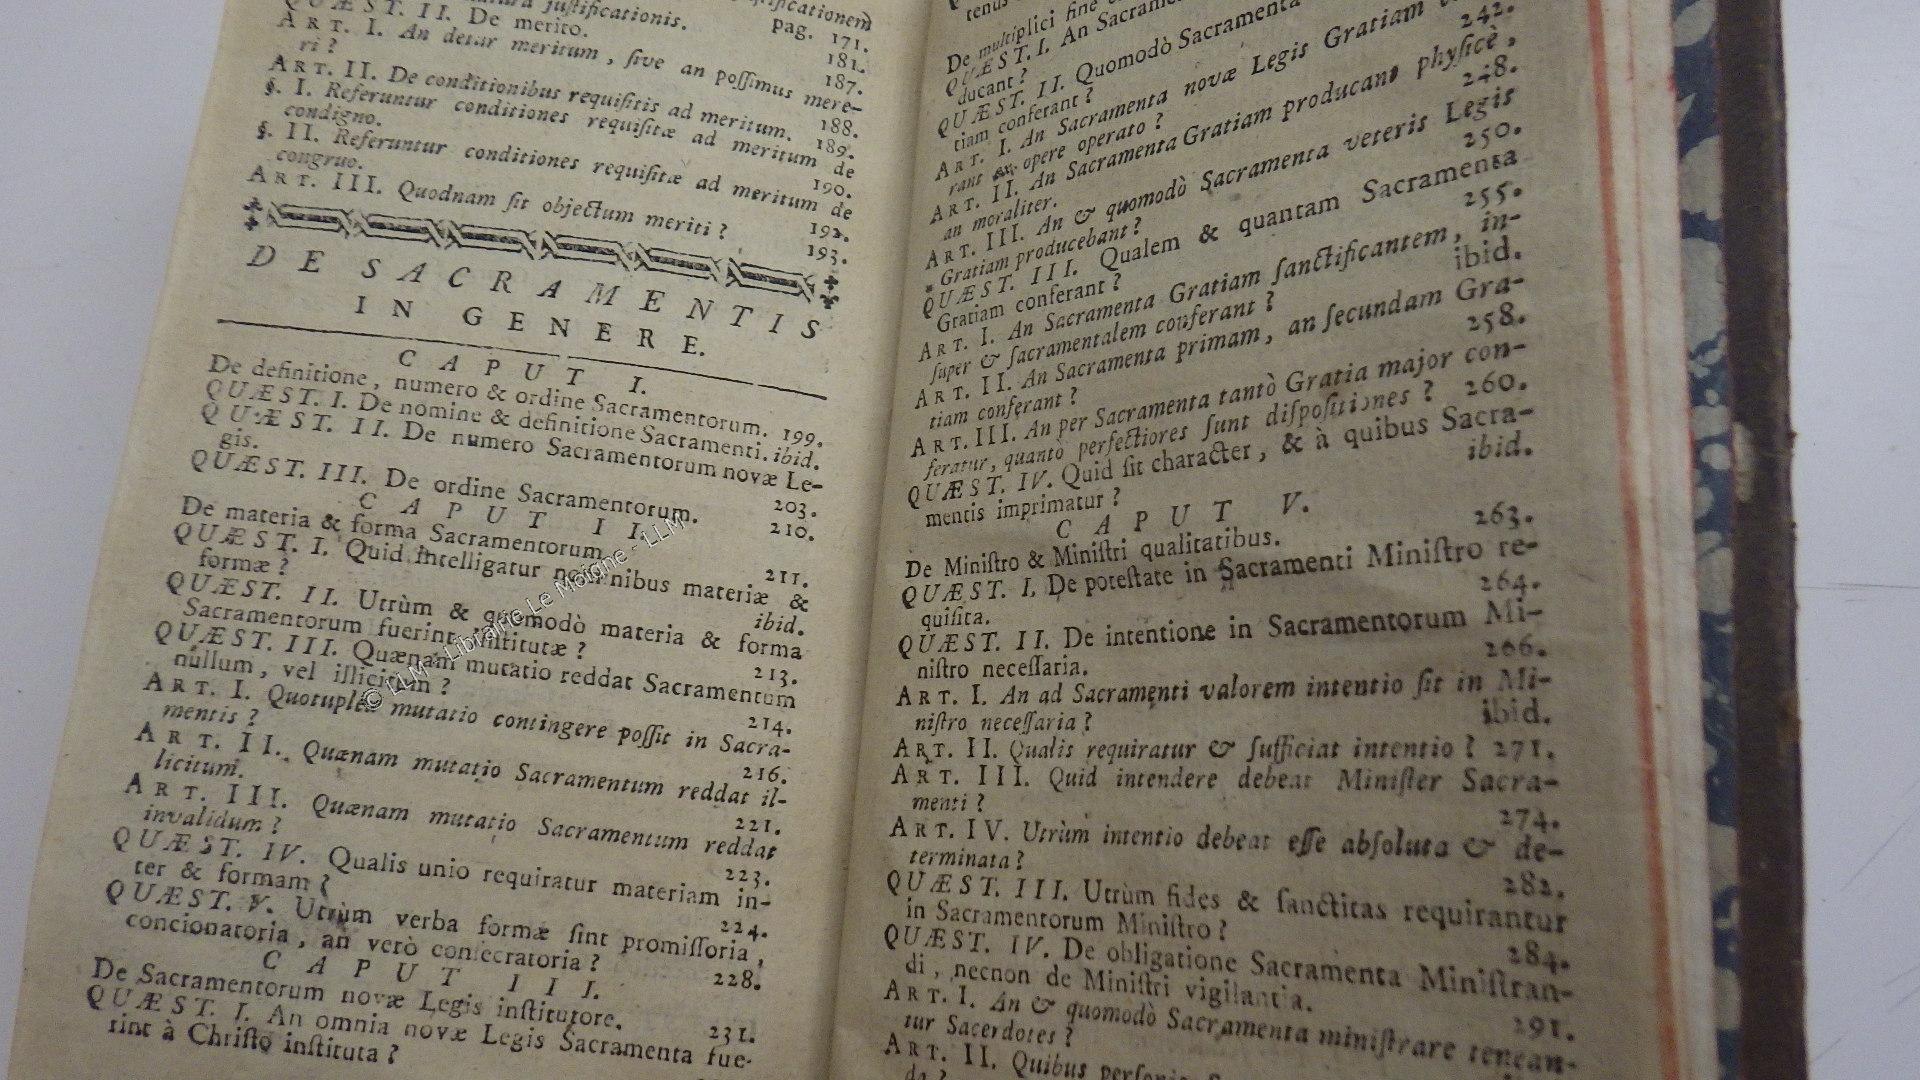 justificationis.
pag. 171.
QUÆST. II. De merito.
181.
ART. I. An detur meritum, sive an possimus mere-
ri?
187.
ART. II. De conditionibus requisitis ad meritum. 188.
§. I. Referuntur conditiones requisitæ ad meritum de
condigno.
189.
§. II. Referuntur conditiones requisitæ ad meritum de
congruo.
190.
ART. III. Quodnam sit objectum meriti?
192.
193.
DE SACRAMENTIS
IN GENERE.
CAPUT I.
De definitione, numero & ordine Sacramentorum. 199.
QUÆST. I. De nomine & definitione Sacramenti. ibid.
QUÆST. II. De numero Sacramentorum novæ Le-
gis.
203.
QUÆST. III. De ordine Sacramentorum.
210.
CAPUT II.
De materia & forma Sacramentorum.
211.
QUÆST. I. Quid intelligatur nominibus materiæ &
formæ?
ibid.
QUÆST. II. Utrùm & quomodò materia & forma
Sacramentorum fuerint institutæ?
213.
QUÆST. III. Quænam mutatio reddat Sacramentum
nullum, vel illicitum?
214.
ART. I. Quotuplex mutatio contingere possit in Sacra-
mentis?
216.
ART. II. Quænam mutatio Sacramentum reddat il-
licitum.
221.
ART. III. Quænam mutatio Sacramentum reddat
invalidum?
223.
QUÆST. IV. Qualis unio requiratur materiam in-
ter & formam?
224.
QUÆST. V. Utrùm verba formæ sint promissoria,
concionatoria, an verò consecratoria?
228.
CAPUT III.
De Sacramentorum novæ Legis institutore.
231.
QUÆST. I. An omnia novæ Legis Sacramenta fue-
rint à Christo instituta?
© LLM - Librairie Le Moigne - LLM
De multiplici fine
QUÆST. I. An Sacramenta
ducant?
QUÆST. II. Quomodò Sacramenta
tiam conferant?
242.
ART. I. An Sacramenta novæ Legis Gratiam
rant ex opere operato?
ART. II. An Sacramenta Gratiam producant physicè,
an moraliter.
248.
ART. III. An & quomodò Sacramenta veteris Legis
Gratiam producebant?
250.
QUÆST. III. Qualem & quantam Sacramenta
Gratiam conferant?
255.
ART. I. An Sacramenta Gratiam sanctificantem, in-
super & sacramentalem conferant?
ibid.
ART. II. An Sacramenta primam, an secundam Gra-
tiam conferant?
258.
ART. III. An per Sacramenta tantò Gratia major con-
feratur, quantò perfectiores sunt dispositiones? 260.
QUÆST. IV. Quid sit character, & à quibus Sacra-
mentis imprimatur?
ibid.
CAPUT V.
De Ministro & Ministri qualitatibus.
263.
QUÆST. I. De potestate in Sacramenti Ministro re-
quisita.
264.
QUÆST. II. De intentione in Sacramentorum Mi-
nistro necessaria.
266.
ART. I. An ad Sacramenti valorem intentio sit in Mi-
nistro necessaria?
ibid.
ART. II. Qualis requiratur & sufficiat intentio? 271.
ART. III. Quid intendere debeat Minister Sacra-
menti?
274.
ART. IV. Utrùm intentio debeat esse absoluta & de-
terminata?
282.
QUÆST. III. Utrùm fides & sanctitas requirantur
in Sacramentorum Ministro?
284.
QUÆST. IV. De obligatione Sacramenta Ministran-
di, necnon de Ministri vigilantia.
291.
ART. I. An & quomodò Sacramenta ministrare tenean-
tur Sacerdotes?
ART. II. Quibus